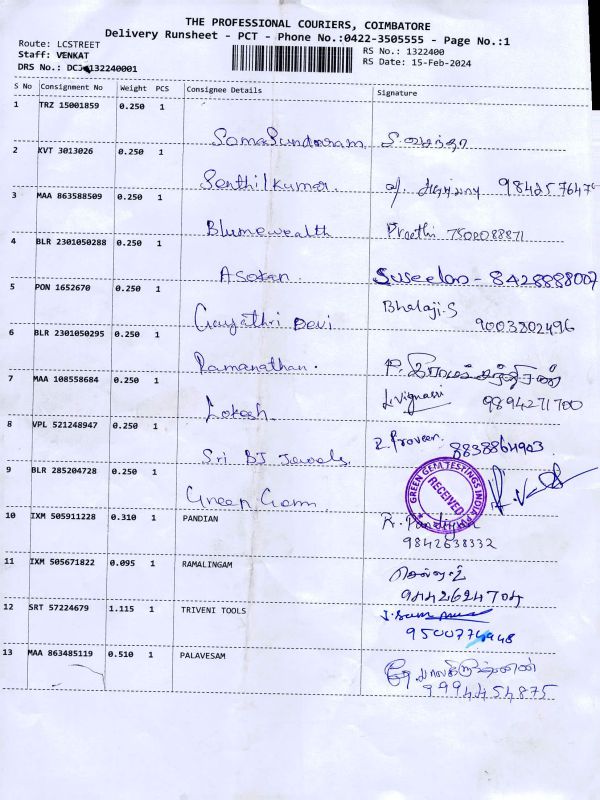 THE PROFESSIONAL COURIERS, COIMBATORE
Delivery Runsheet - PCT - Phone No.:0422-3505555 - Page No.:1
Route: LCSTREET
RS No.: 1322400
Staff: VENKAT
RS Date: 15-Feb-2024
DRS No.: 132240001
S No Consignment No Weight PCS Consignee Details Signature
1 TRZ 15001859 0.250 1
SomaSundaram
2 KVT 3013026 0.250 1
Senthilkumar.
3 MAA 863588509 0.250 1
Blumewealth Preethi 7502088871
4 BLR 2301050288 0.250 1
Asokan. Suseelan - 8428888007
5 PON 1652670 0.250 1
Gayathri Devi Bhalaji.S
9003802496
6 BLR 2301050295 0.250 1
Ramanathan.
7 MAA 108558684 0.250 1
Lokesh 9894271700
8 VPL 521248947 0.250 1
Sri BJ Jewels Praveen. 8838864903
9 BLR 285204728 0.250 1
Green Gem
GREEN GEM TESTINGS INDIA
RECEIVED
10 IXM 505911228 0.310 1 PANDIAN
R. Pandiyan
9842638332
11 IXM 505671822 0.095 1 RAMALINGAM
9442624704
12 SRT 57224679 1.115 1 TRIVENI TOOLS
13 MAA 863485119 0.510 1 PALAVESAM
9994454875